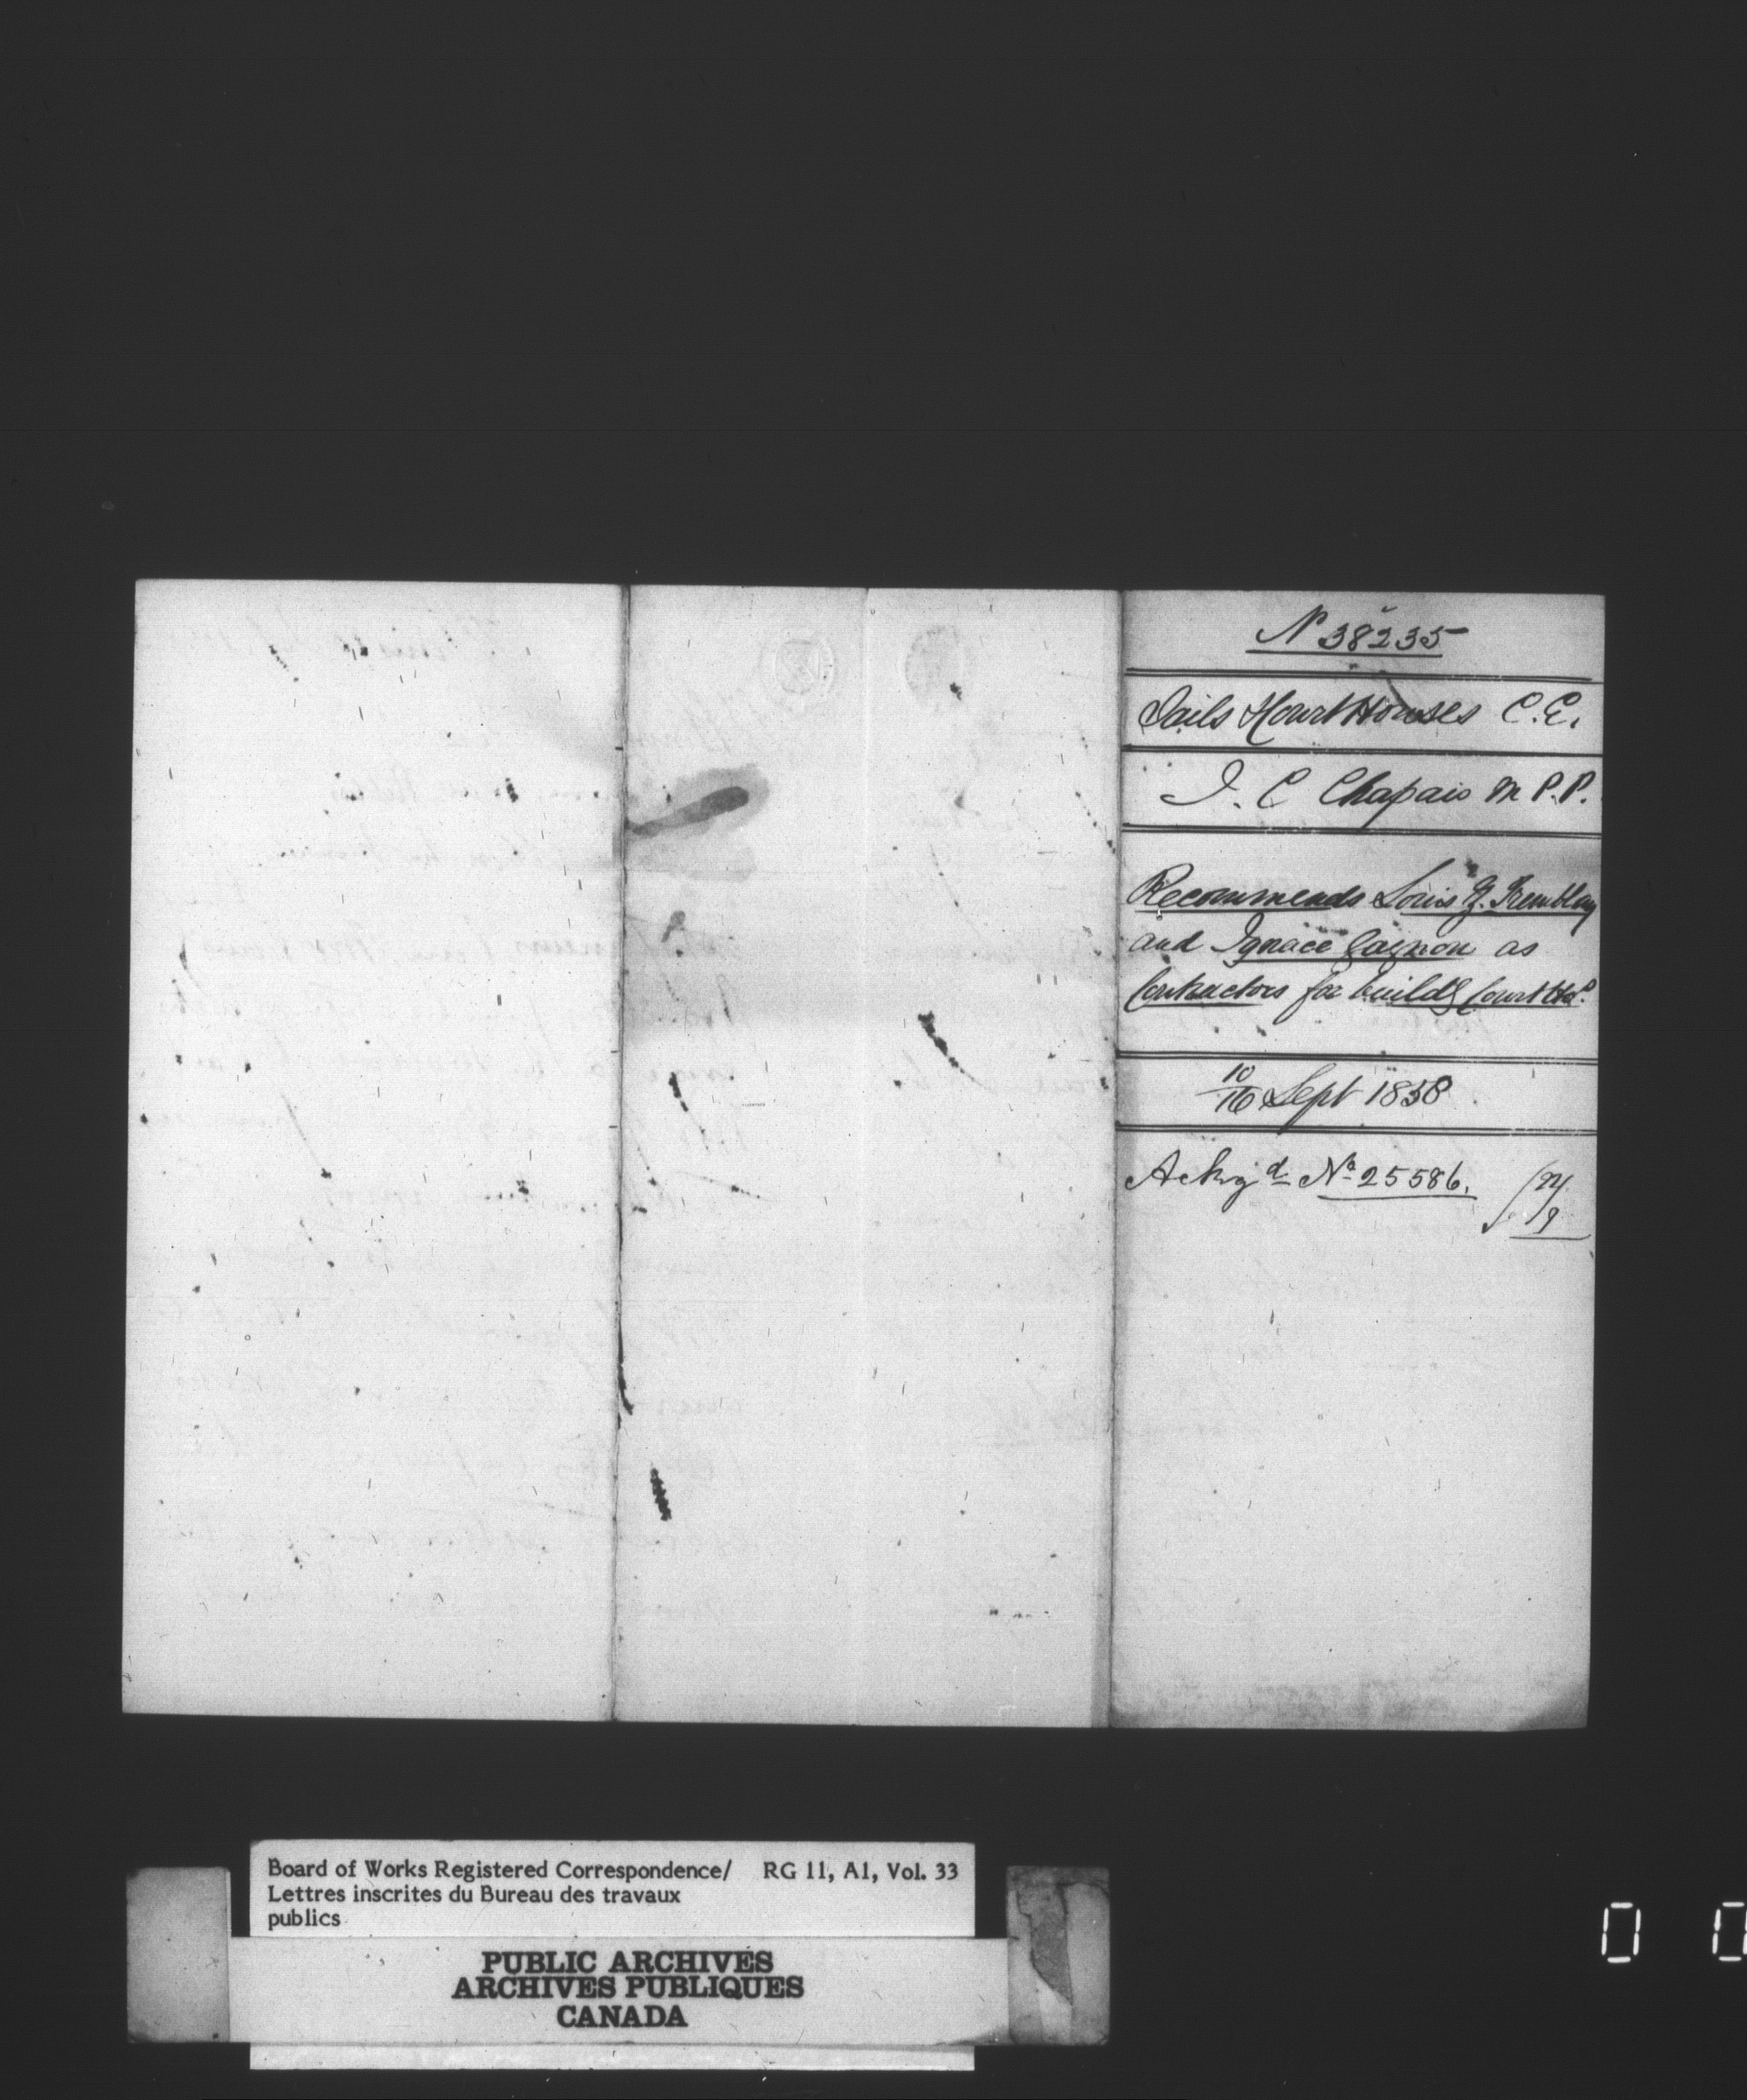 No 38235
Jails & Court Houses C.E.
J. C Chapais M P.P.
Recommends Louis G. Tremblay
and Ignace Gagnon as
Contractors for buildg Court Hos.
10/16 Sept 1858
Ackgd No 25586.
Board of Works Registered Correspondence/ RG 11, A1, Vol. 33
Lettres inscrites du Bureau des travaux
publics
PUBLIC ARCHIVES
ARCHIVES PUBLIQUES
CANADA
0 0